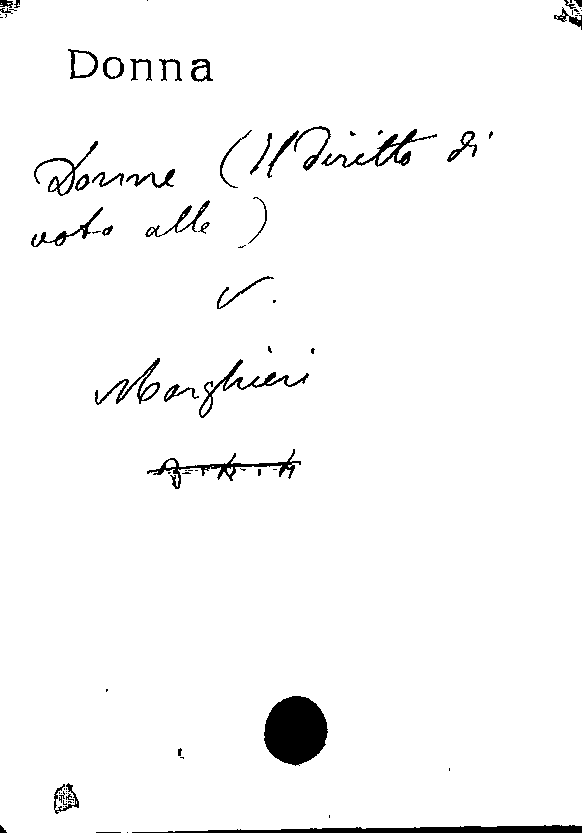 Donna
Donne (Il diritto di
voto alle)
V.
Marghieri